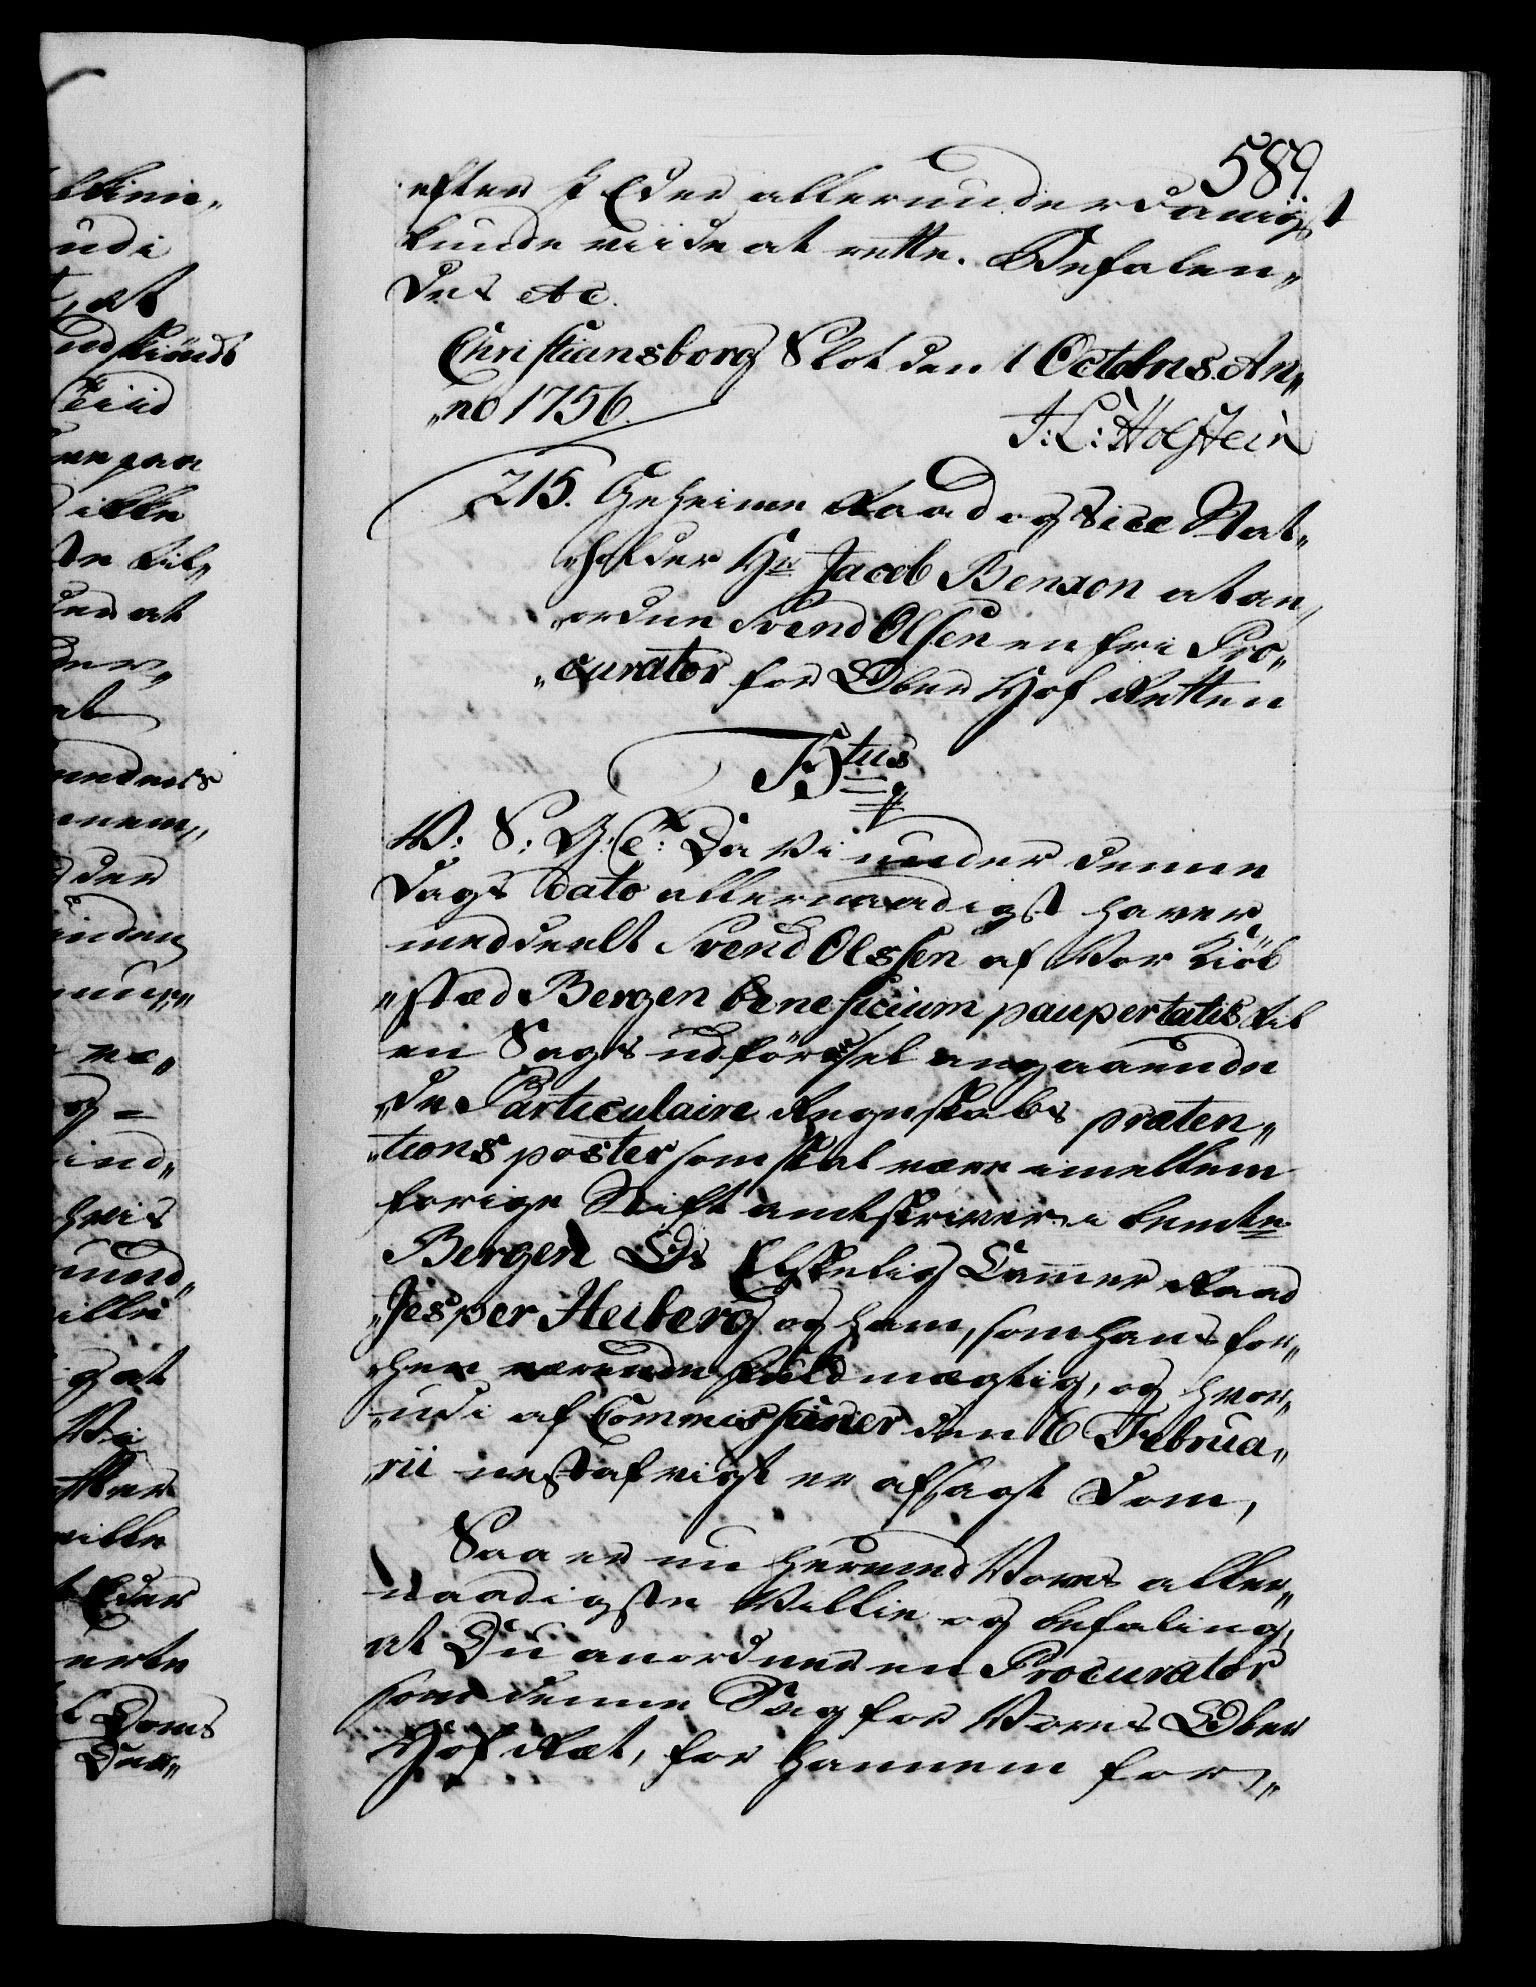 589.
efter I Eder allerunderdanigst
kunde viide at rette. Befalen„
des etc.
Christiansborg Slot den 1 Octobris. An„
„no 1756.
J: L: Holstein
215. Geheime Raad og Vice Stat„
„holder Hr Jacob Benzon at an„
„ordne Svend Olssen en fri Pro„
„curator for Ober Hof Retten
F5tus
V: S: G: E: Da Vi under denne
Dags Dato allernaadigst haver
meddeelt Svend Olssen af Vor Kiöb
„stæd Bergen beneficium paupertatis til
en Sags udförsel angaaende
„de Particulaire Regnskabs præten„
„tions poster som skal være imellem
forige Stift amtskriver i bemte
Bergen Os Elskelig Cammer Raad
„Jesper Heiberg og ham, som hans for„
„hen værende fuldmægtig, og hvor„
„udi af Commissarier den 6 Februa„
„rii nestafvigt er afsagt Dom,
Saa er nu herved Vores aller„
naadigste Villie og befaling,
at Du anordner en Procurator
som denne Sag for Vores Ober
Hof Ret, for hannem for„